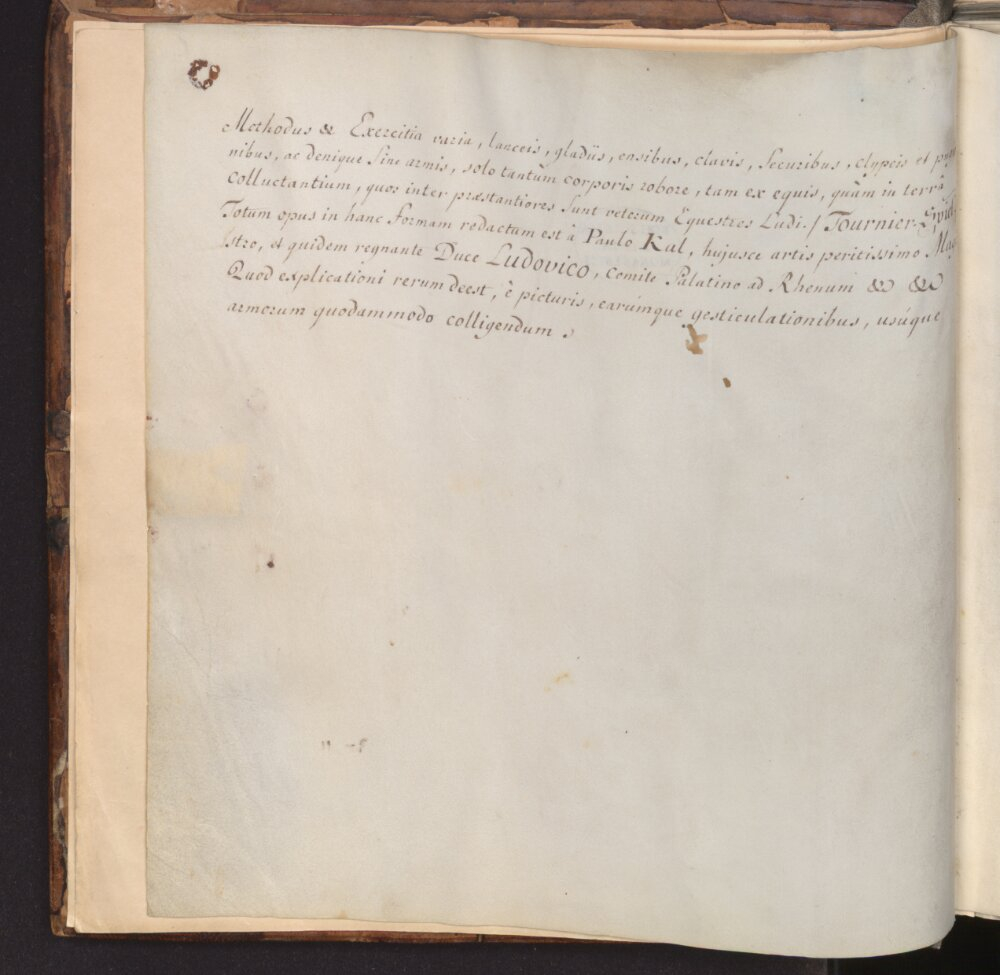 Methodus & Exercitia varia, lanceis, gladiis, ensibus, clavis, securibus, clypeis et pugio
nibus, ac denique sine armis, solo tantùm corporis robore, tam ex equis, quàm in terrâ
colluctantium, quos inter præstantiores sunt veterum Equestres Ludi. / Tournier-
Totum opus in hanc formam redactum est â Paulo Kal, hujusce artis peritissimo Magi
stro, et quidem regnante Duce Ludovico, Comite Palatino ad Rhenum && &&
Quod explicationi rerum deest, ê picturis, earúmque gesticulationibus, usúque
armorum quodammodo colligendum.